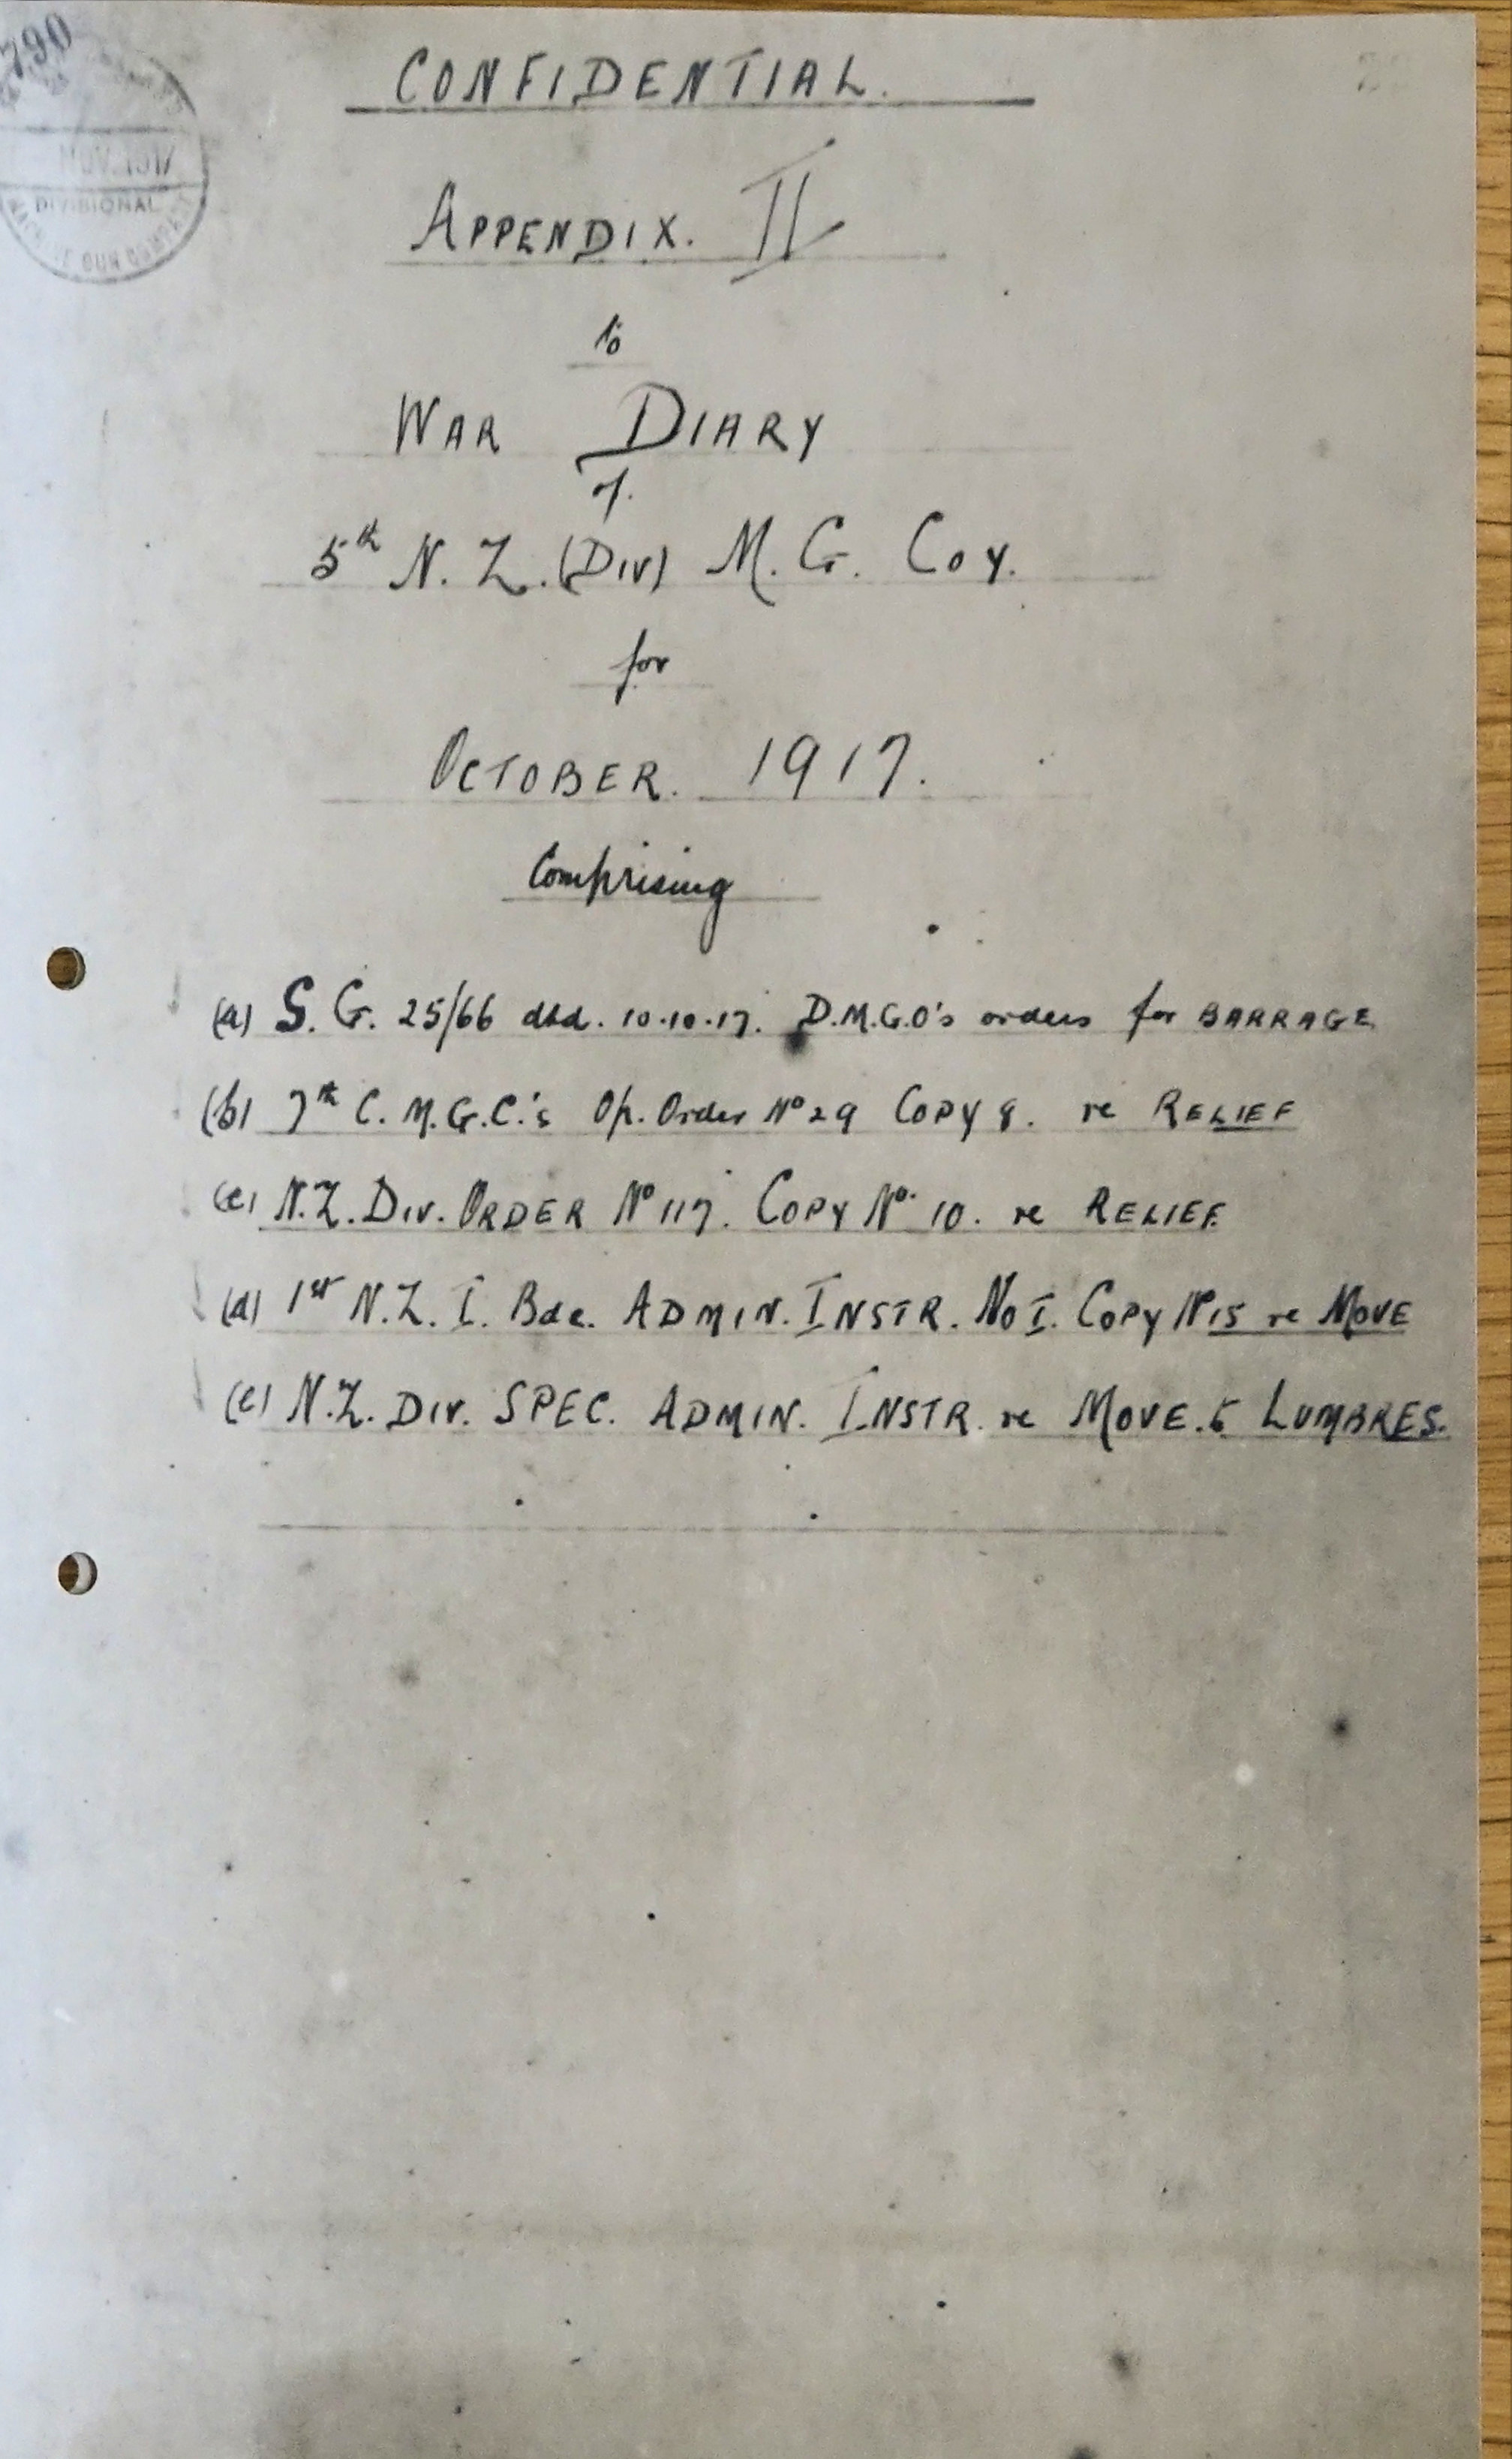 790
NOV. 1917
DIVISIONAL
MACHINE GUN COMPANY
CONFIDENTIAL.
APPENDIX. II
to
WAR DIARY
of
5th N. Z. (DIV) M. G. COY.
for
OCTOBER. 1917.
Comprising
(a) S. G. 25/66 dtd. 10.10.17. D.M.G.O's orders for BARRAGE
(b) 7th C. M. G. C.'s Op. Order No 29 COPY 8. re RELIEF
(c) N.Z. DIV. ORDER No 117. COPY No. 10. re RELIEF.
(d) 1st N. Z. I. Bde. ADMIN. INSTR. No I. COPY No 15 re MOVE
(e) N.Z. DIV. SPEC. ADMIN. INSTR. re MOVE. to LUMBRES.